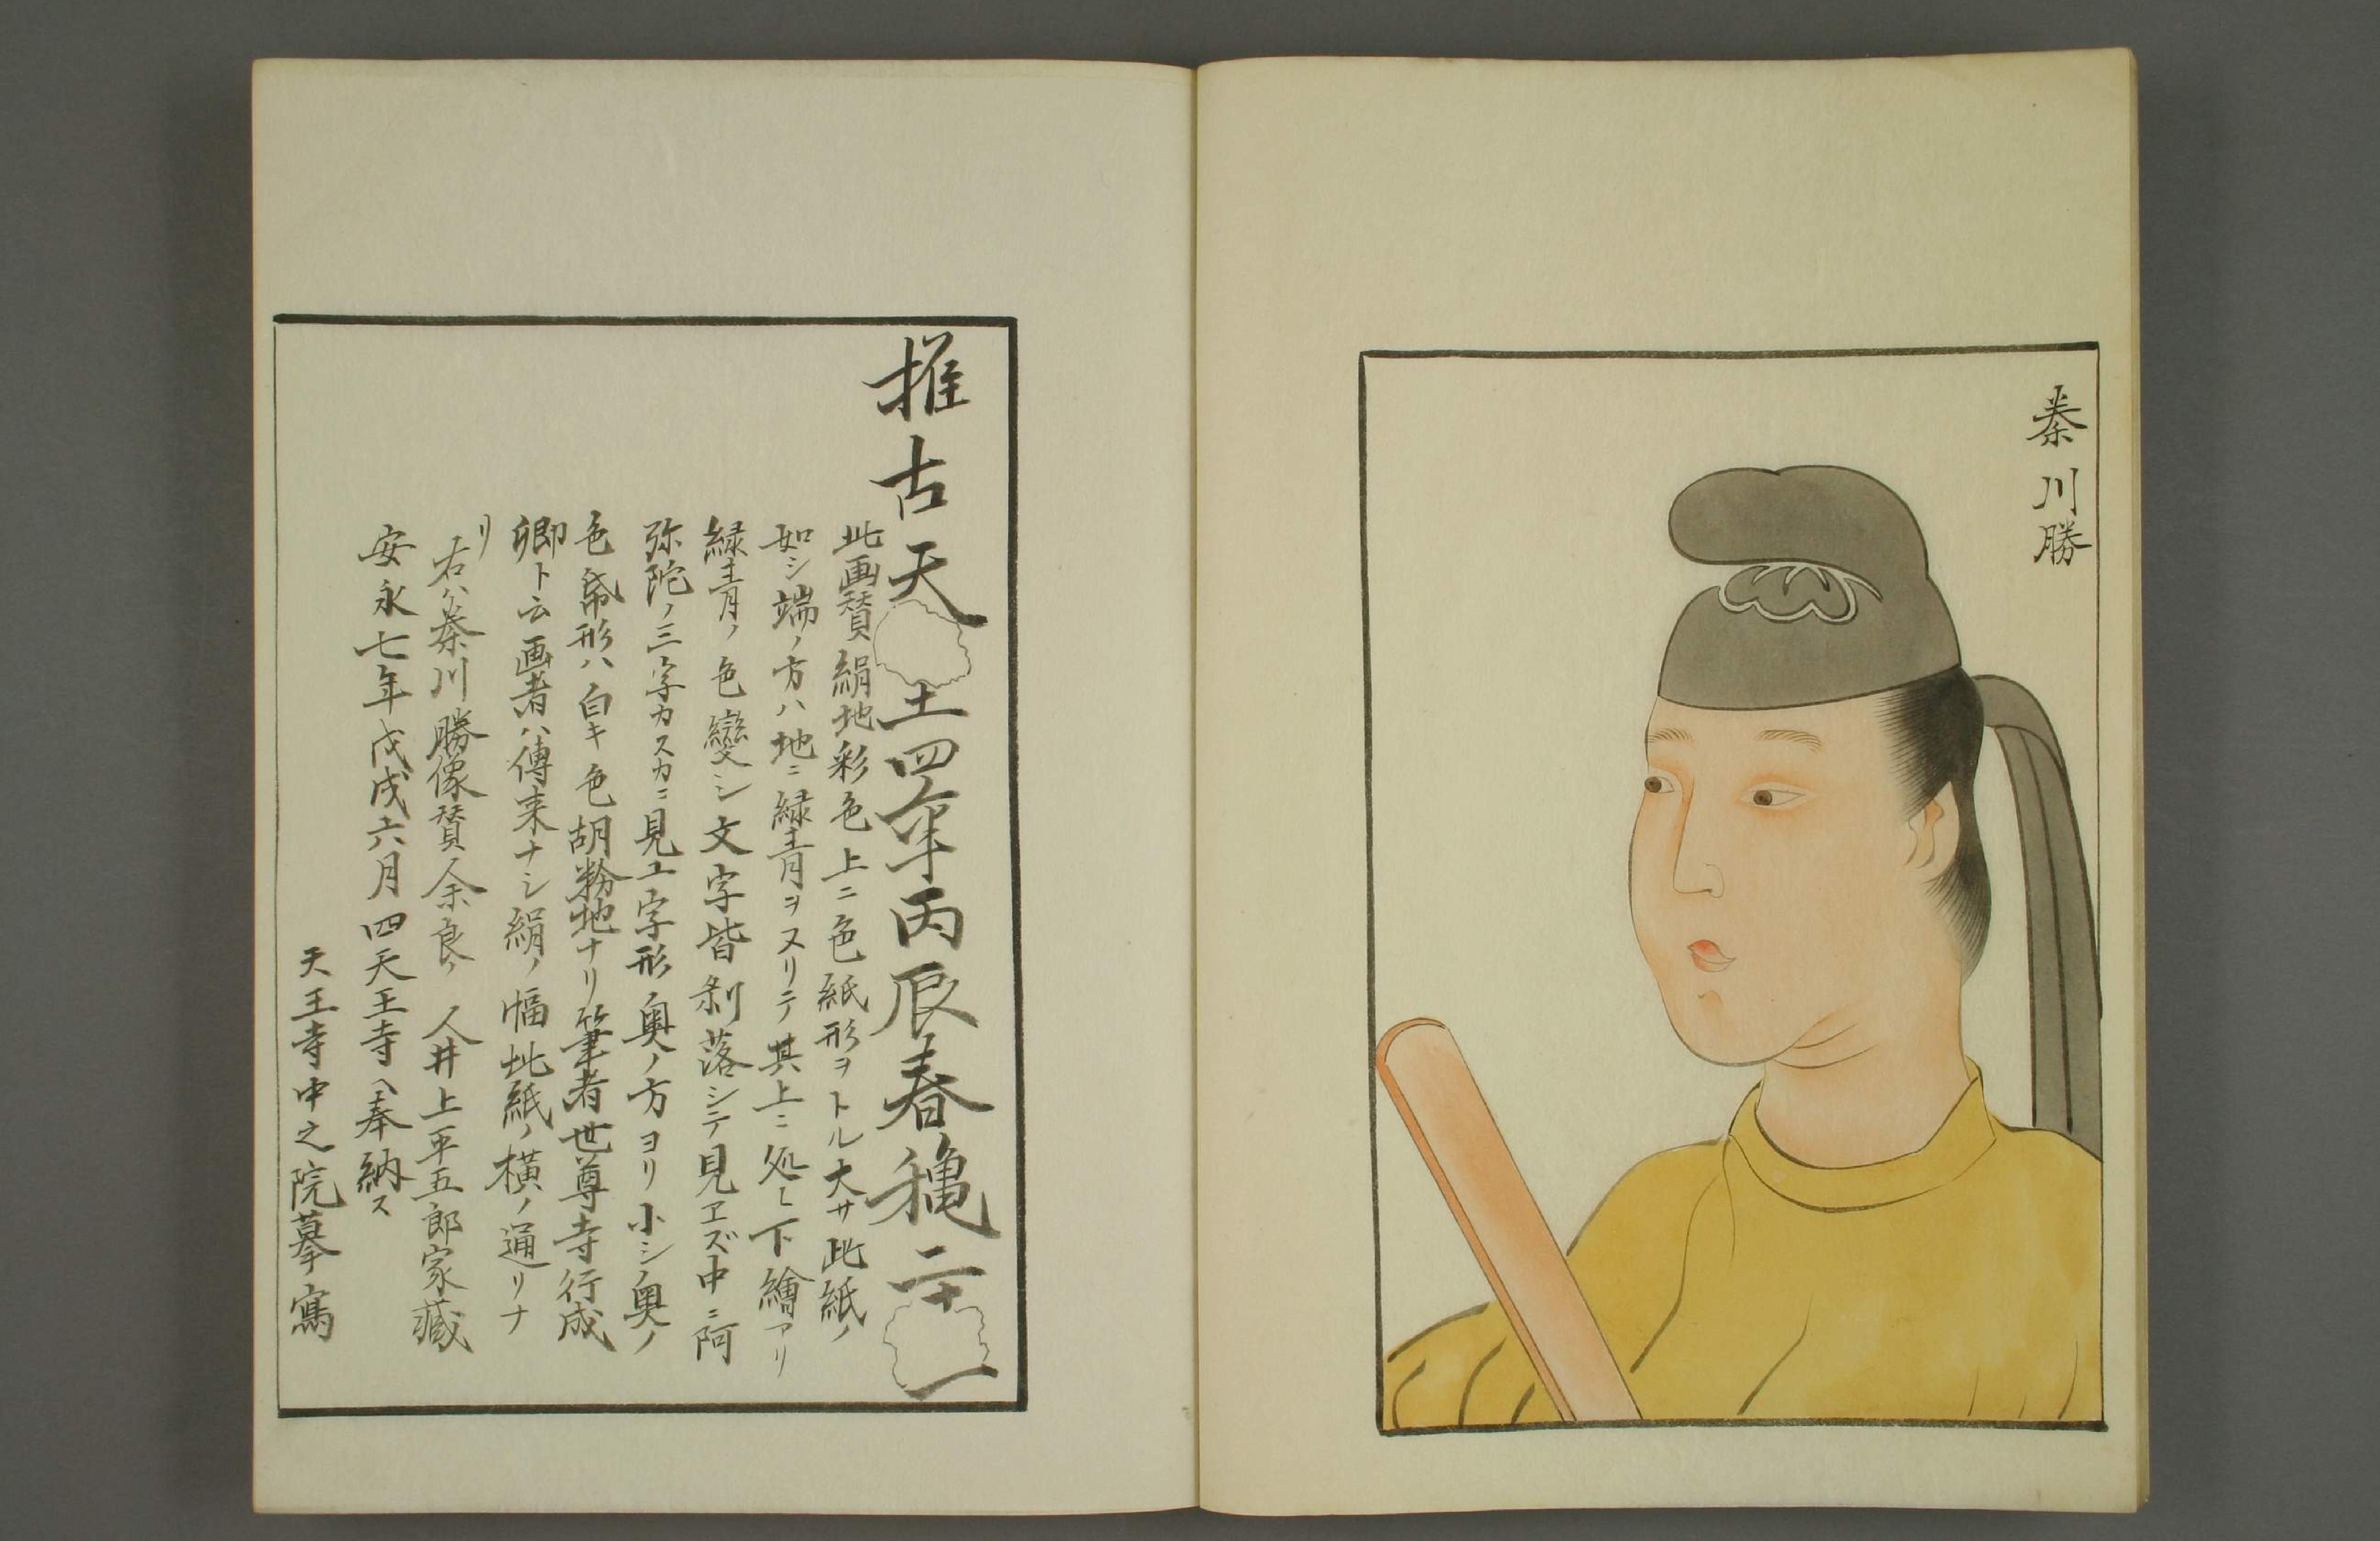 秦川勝
推古天土四年丙辰春穐二十一
此画賛絹地彩色上ニ色紙形ヲトル大サ此紙ノ
如シ端ノ方ハ地ニ緑青ヲヌリテ其上ニ処〻下繪アリ
緑青ノ色變シ文字皆剥落シテ見ヱズ中ニ阿
弥陀ノ三字カスカニ見ユ字形ノ奥ノ方ヨリ小シ奥ノ
色帋形ハ白キ色胡粉地ナリ筆者世尊寺行成
卿ト云画者ハ傳来ナシ絹ノ幅此紙ノ横ノ通リナ
リ
右ハ秦川勝像賛余良ノ人井上平五郎家藏
安永七年戊戌六月四天王寺ヘ奉納ス
天王寺中之院摹寫